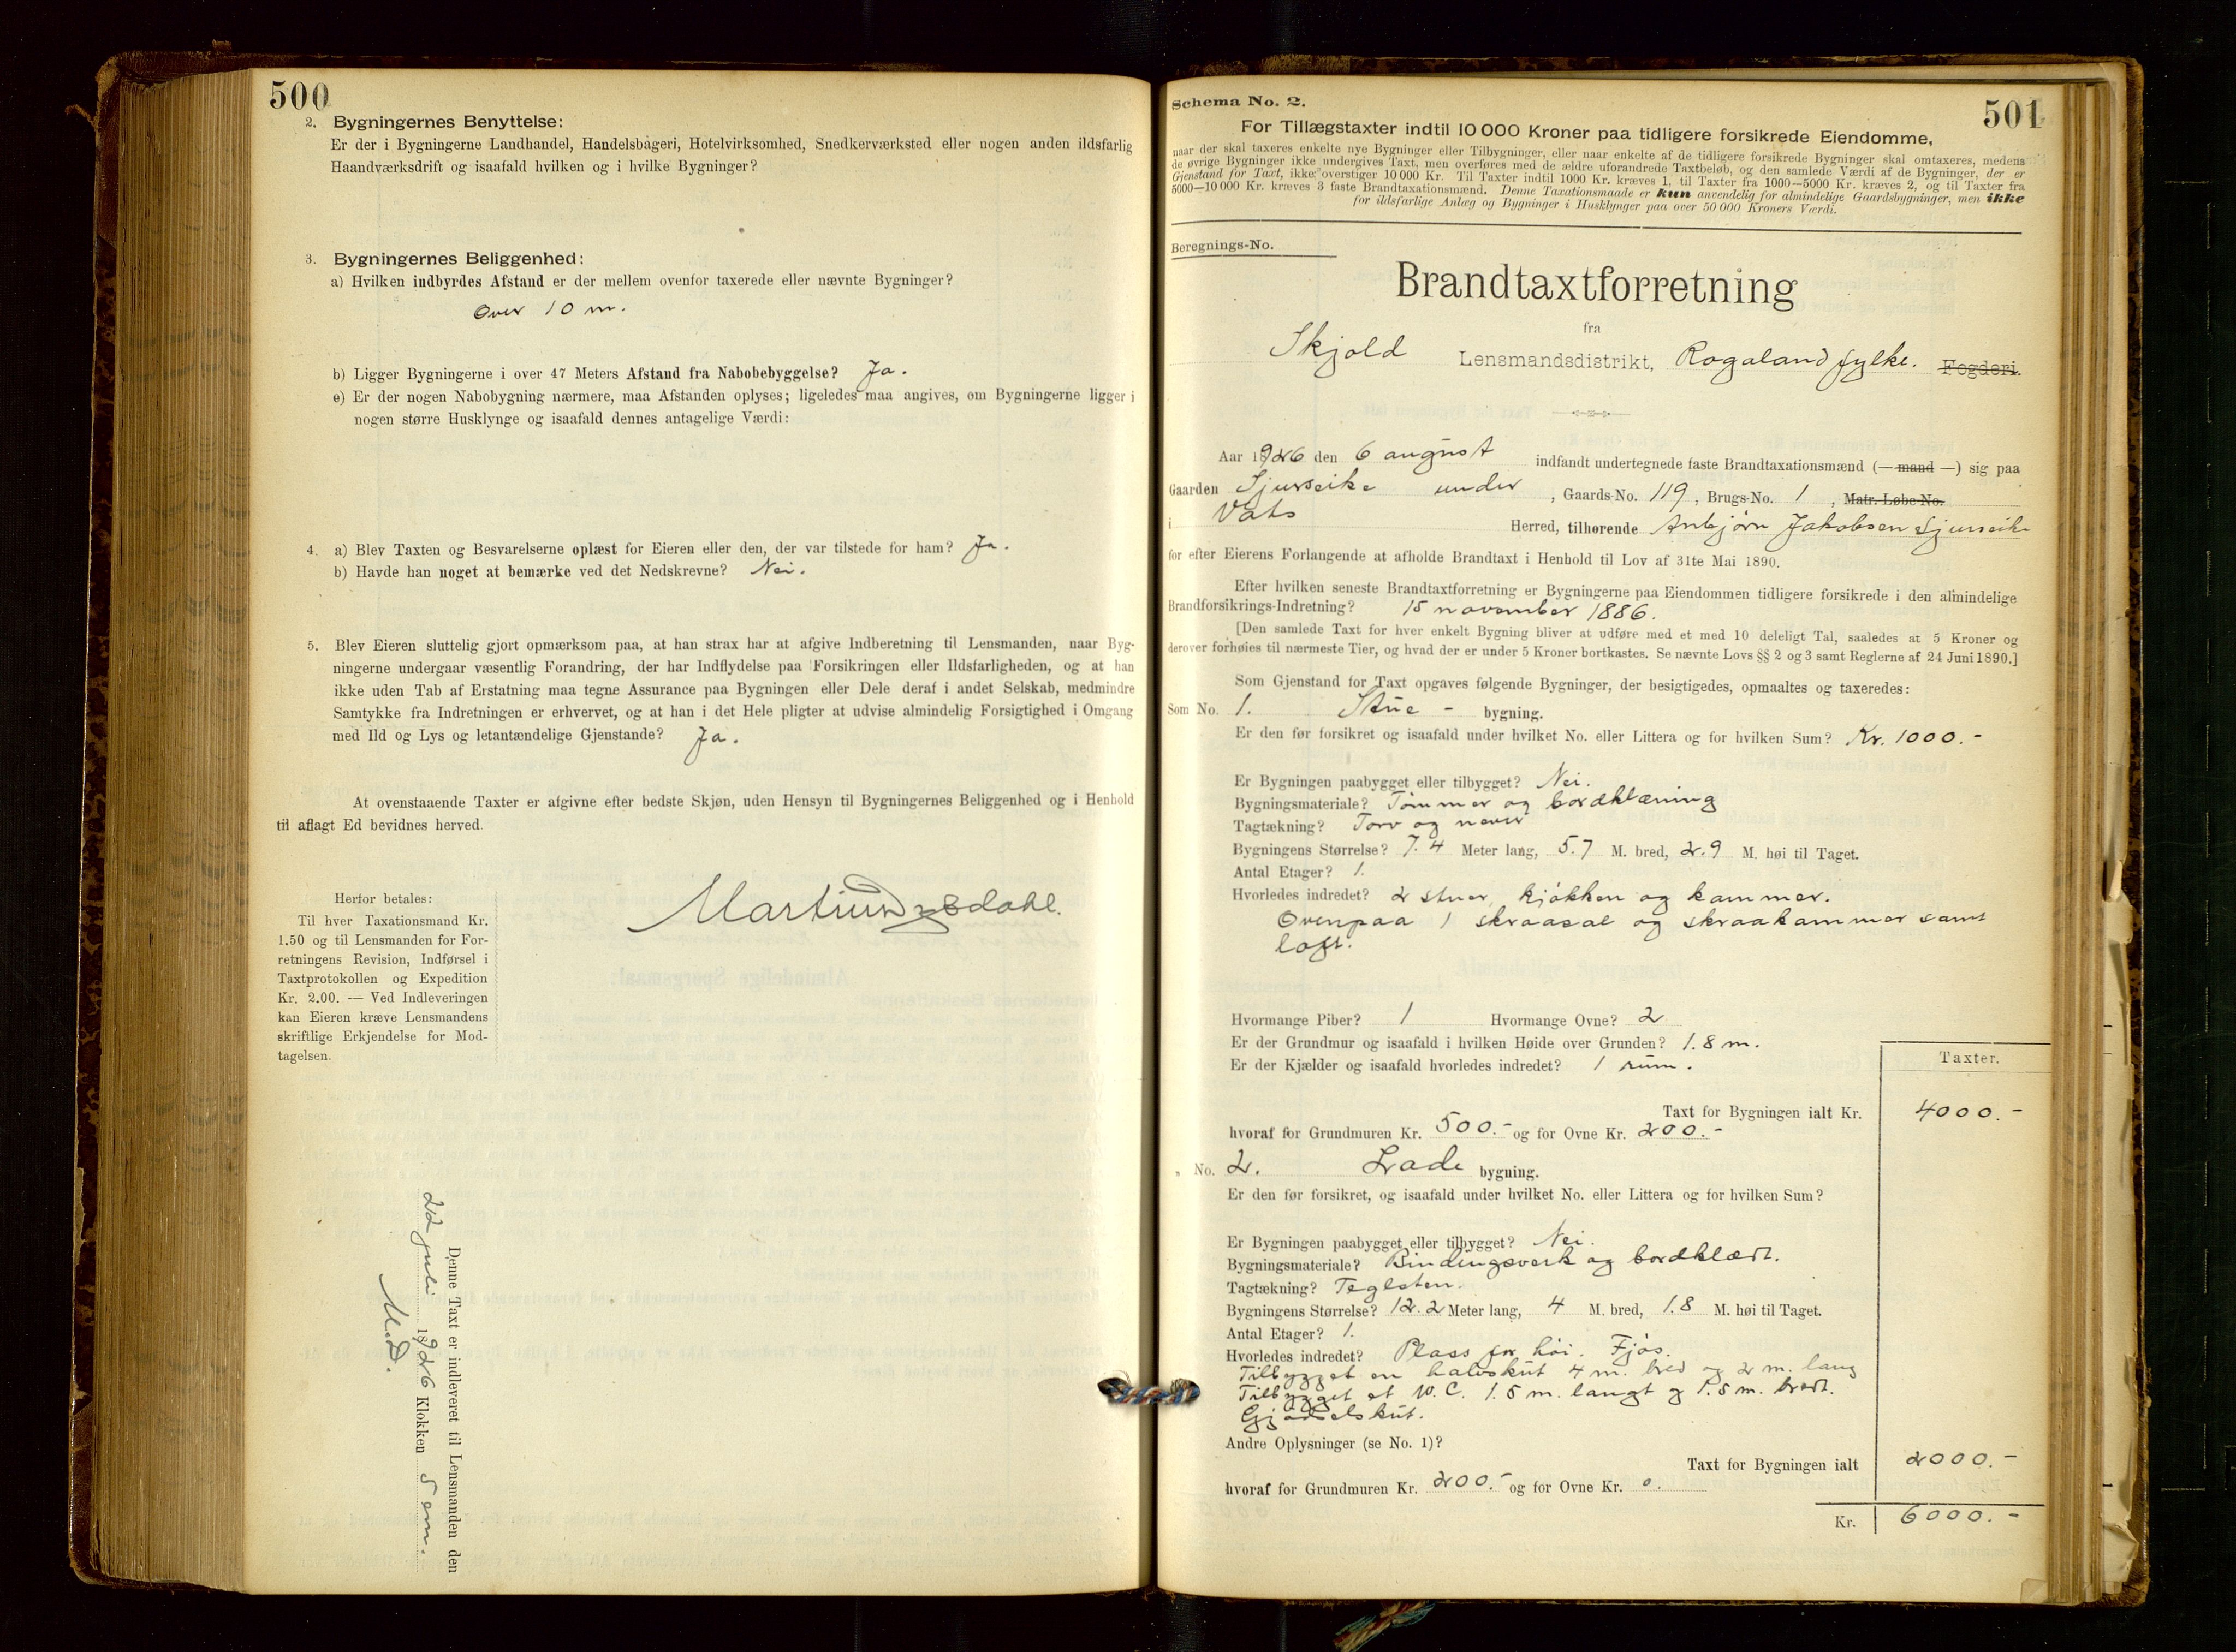 500
2. Bygningernes Benyttelse:
Er der i Bygningerne Landhandel, Handelsbageri, Hotelvirksomhed, Snedkerværksted eller nogen anden ildsfarlig
Haandværksdrift og isaafald hvilken og i hvilke Bygninger?
3. Bygningernes Beliggenhed:
a) Hvilken indbyrdes Afstand er der mellem ovenfor taxerede eller nævnte Bygninger?
Over 10 m.
b) Ligger Bygningerne i over 47 Meters Afstand fra Nabobebyggelse? Ja.
c) Er der nogen Nabobygning nærmere, maa Afstanden oplyses; ligeledes maa angives, om Bygningerne ligger i
nogen større Husklynge og isaafald dennes antagelige Værdi:
4. a) Blev Taxten og Besvarelserne oplæst for Eieren eller den, der var tilstede for ham? Ja.
b) Havde han noget at bemærke ved det Nedskrevne? Nei.
5. Blev Eieren sluttelig gjort opmærksom paa, at han strax har at afgive Indberetning til Lensmanden, naar Byg-
ningerne undergaar væsentlig Forandring, der har Indflydelse paa Forsikringen eller Ildsfarligheden, og at han
ikke uden Tab af Erstatning maa tegne Assurance paa Bygningen eller Dele deraf i andet Selskab, medmindre
Samtykke fra Indretningen er erhvervet, og at han i det Hele pligter at udvise almindelig Forsigtighed i Omgang
med Ild og Lys og letantændelige Gjenstande? Ja.
At ovenstaaende Taxter er afgivne efter bedste Skjøn, uden Hensyn til Bygningernes Beliggenhed og i Henhold
til aflagt Ed bevidnes herved.
Herfor betales:
Til hver Taxationsmand Kr.
1.50 og til Lensmanden for For-
retningens Revision, Indførsel i
Taxtprotokollen og Expedition
Kr. 2.00. — Ved Indleveringen
kan Eieren kræve Lensmandens
skriftlige Erkjendelse for Mod-
tagelsen.
Denne Taxt er indleveret til Lensmanden den
22 juli 1926 Klokken 5 em.
M.D.
Schema No. 2.
501
For Tillægstaxter indtil 10 000 Kroner paa tidligere forsikrede Eiendomme,
naar der skal taxeres enkelte nye Bygninger eller Tilbygninger, eller naar enkelte af de tidligere forsikrede Bygninger skal omtaxeres, medens
de øvrige Bygninger ikke undergives Taxt, men overføres med de ældre uforandrede Taxtbeløb, og den samlede Værdi af de Bygninger, der er
Gjenstand for Taxt, ikke overstiger 10 000 Kr. Til Taxter indtil 1000 Kr. kræves 1, til Taxter fra 1000—5000 Kr. kræves 2, og til Taxter fra
5000—10 000 Kr. kræves 3 faste Brandtaxationsmænd. Denne Taxationsmaade er kun anvendelig for almindelige Gaardsbygninger, men ikke
for ildsfarlige Anlæg og Bygninger i Husklynger paa over 50 000 Kroners Værdi.
Beregnings-No.
Brandtaxtforretning
fra
Skjold Lensmandsdistrikt, Rogaland fylke. Fogderi.
Aar 1926 den 6 august indfandt undertegnede faste Brandtaxationsmænd (— mand —) sig paa
Gaarden Sjurseike under, Gaards-No. 119, Brugs-No. 1, Matr. Løbe-No.
i Vats Herred, tilhørende Anbjørn Jakobsen Sjurseike
for efter Eierens Forlangende at afholde Brandtaxt i Henhold til Lov af 31te Mai 1890.
Efter hvilken seneste Brandtaxtforretning er Bygningerne paa Eiendommen tidligere forsikrede i den almindelige
Brandforsikrings-Indretning? 15 november 1886.
[Den samlede Taxt for hver enkelt Bygning bliver at udføre med et med 10 deleligt Tal, saaledes at 5 Kroner og
derover forhøies til nærmeste Tier, og hvad der er under 5 Kroner bortkastes. Se nævnte Lovs §§ 2 og 3 samt Reglerne af 24 Juni 1890.]
Som Gjenstand for Taxt opgaves følgende Bygninger, der besigtigedes, opmaaltes og taxeredes:
Som No. 1. Stue - bygning.
Er den før forsikret og isaafald under hvilket No. eller Littera og for hvilken Sum? Kr. 1000.-
Er Bygningen paabygget eller tilbygget? Nei.
Bygningsmateriale? Tømmer og bordklæning
Tagtækning? Torv og never
Bygningens Størrelse? 7.4 Meter lang, 5.7 M. bred, 2.9 M. høi til Taget.
Antal Etager? 1.
Hvorledes indredet? 2 stuer, kjøkken og kammer.
Ovenpaa 1 skraasal og skraakammer samt
loft.
Hvormange Piber? 1 Hvormange Ovne? 2
Er der Grundmur og isaafald i hvilken Høide over Grunden? 1.8 m.
Er der Kjælder og isaafald hvorledes indredet? 1 rum.
Taxter.
Taxt for Bygningen ialt Kr. 4000.-
hvoraf for Grundmuren Kr. 500.- og for Ovne Kr. 200.-
" No. 2. Lade bygning.
Er den før forsikret, og isaafald under hvilket No. eller Littera og for hvilken Sum?
Er Bygningen paabygget eller tilbygget? Nei.
Bygningsmateriale? Bindingsverk og bordklædt.
Tagtækning? Teglsten.
Bygningens Størrelse? 12.2 Meter lang, 4 M. bred, 1.8 M. høi til Taget.
Antal Etager? 1.
Hvorledes indredet? Plass for høi. Fjøs.
Tilbygget en halvskut 4 m. bred og 2 m. lang
Tilbygget et W.C. 1.5 m. langt og 1.5 m. bredt.
Gjødselskut.
Andre Oplysninger (se No. 1)?
Taxt for Bygningen ialt 2000.-
hvoraf for Grundmuren Kr. 200.- og for Ovne Kr. 0.
Kr. 6000.-